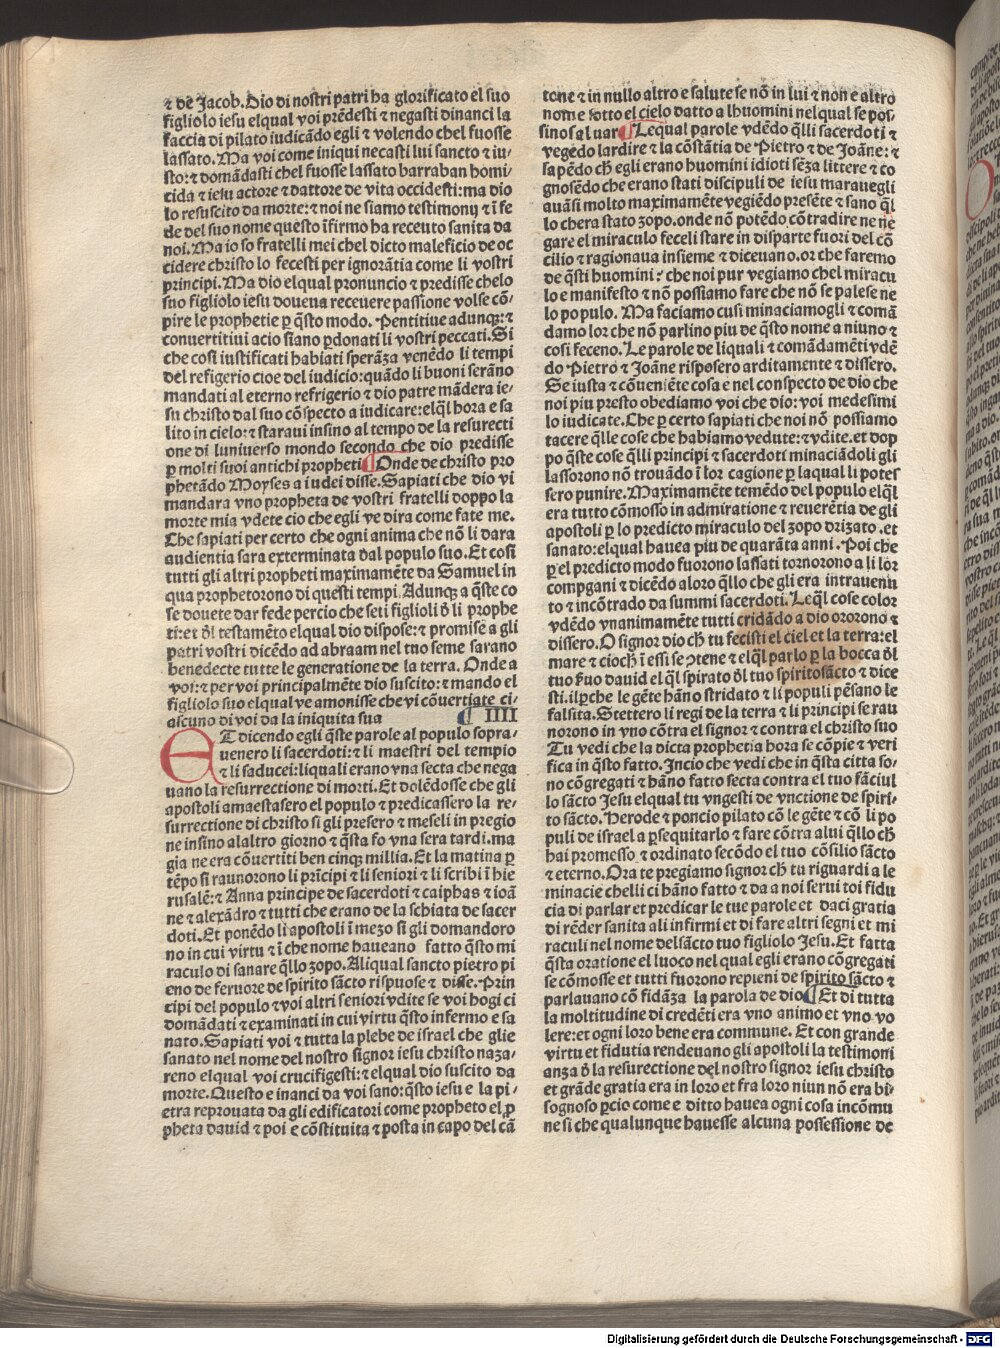 ⁊ de Jacob. Dio di nostri patri ha glorificato el suo
figliolo iesu elqual voi prēdesti ⁊ negasti dinanci la
faccia di pilato iudicādo egli ⁊ volendo chel fuosse
lassato. Ma voi come iniqui necasti lui sancto ⁊ iu-
sto: ⁊ domādasti chel fuosse lassato barraban homi-
cida ⁊ iesu actore ⁊ dattore de vita occidesti: ma dio
lo resuscito da morte: ⁊ noi ne siamo testimonij ⁊ ī fe
de del suo nome questo īfirmo ha receuto sanita da
noi. Ma io so fratelli mei chel dicto maleficio de oc
cidere christo lo fecesti per ignorātia come li vostri
principi. Ma dio elqual pronuncio ⁊ predisse chelo
suo figliolo iesu doueua receuere passione volse cō-
pire le prophetie ꝑ q̄sto modo. Pentitiue adunqꝫ: ⁊
conuertitiui acio siano ꝑdonati li vostri peccati. Si
che cosi iustificati habiati sperāza venēdo li tempi
del refigerio cioe del iudicio: quādo li buoni serāno
mandati al eterno refrigerio ⁊ dio patre mādera ie-
su christo dal suo cōspecto a iudicare: elq̄l hora e sa
lito in cielo: ⁊ staraui insino al tempo de la resurecti
one di luniuerso mondo secondo che dio predisse
ꝑ molti suoi antichi propheti ¶ Onde de christo pro
phetādo Moyses a iudei disse. Sapiati che dio vi
mandara vno propheta de vostri fratelli doppo la
morte mia vdete cio che egli ve dira come fate me.
Che sapiati per certo che ogni anima che nō li dara
audientia sara exterminata dal populo suo. Et cosi
tutti gli altri propheti maximamēte da Samuel in
qua prophetorono di questi tempi. Adunqꝫ a q̄ste co
se douete dar fede percio che seti figlioli d̄ li prophe
ti: et d̄l testamēto elqual dio dispose: ⁊ promise a gli
patri vostri dicēdo ad abraam nel tuo seme sarano
benedecte tutte le generatione de la terra. Onde a
voi: ⁊ per voi principalmēte dio suscito: ⁊ mando el
figliolo suo elqual ve amonisse che vi cōuertiate ci-
ascuno di voi da la iniquita sua ¶ IIII
ET dicendo egli q̄ste parole al populo sopra-
uenero li sacerdoti: ⁊ li maestri del tempio
⁊ li saducei: liquali erano vna secta che nega
uano la resurrectione di morti. Et dolēdosse che gli
apostoli amaestasero el populo ⁊ predicassero la re-
surrectione di christo si gli presero ⁊ meseli in pregio
ne insino alaltro giorno ⁊ q̄sta fo vna sera tardi. ma
gia ne era cōuertiti ben cinqꝫ millia. Et la matina ꝑ
tēpo si raunorono li prīcipi ⁊ li seniori ⁊ li scribi ī hie
rusalē: ⁊ Anna principe de sacerdoti ⁊ caiphas ⁊ ioā
ne ⁊ alexādro ⁊ tutti che erano de la schiata de sacer
doti. Et ponēdo li apostoli ī mezo si gli domandoro
no in cui virtu ⁊ ī che nome haueano fatto q̄sto mi
raculo di sanare q̄llo zopo. Aliqual sancto pietro pi
eno de feruore de spirito sācto rispuose ⁊ disse. Prin
cipi del populo ⁊ voi altri seniori vdite se voi hogi ci
domādati ⁊ examinati in cui virtu q̄sto infermo e sa
nato. Sapiati voi ⁊ tutta la plebe de israel che glie
sanato nel nome del nostro signor iesu christo naza-
reno elqual voi crucifigesti: ⁊ elqual dio suscito da
morte. Questo e inanci da voi sano: q̄sto iesu e la pi-
etra reprouata da gli edificatori come propheto el ꝓ
pheta dauid ⁊ poi e cōstituita ⁊ posta in capo del cā
tone ⁊ in nullo altro e salute se nō in lui ⁊ non e altro
nome sotto el cielo datto a lhuomini nelqual se pos-
sino saluar ¶ Lequal parole vdēdo q̄lli sacerdoti ⁊
vegēdo lardire ⁊ la cōstātia de Pietro ⁊ de Joāne: ⁊
sapēdo ch̄ egli erano huomini idioti sēza littere ⁊ co
gnosēdo che erano stati discipuli de iesu marauegli
auāsi molto maximamēte vegiēdo presēte ⁊ sano q̄l
lo chera stato zopo. onde nō potēdo cōtradire ne ne
gare el miraculo feceli stare in disparte fuori del cō
cilio ⁊ ragionaua insieme ⁊ diceuano. or che faremo
de q̄sti huomini? che noi pur vegiamo chel miracu
lo e manifesto ⁊ nō possiamo fare che nō se palese ne
lo populo. Ma faciamo cusi minaciamogli ⁊ comā
damo lor che nō parlino piu de q̄sto nome a niuno ⁊
cosi feceno. Le parole de liquali ⁊ comādamēti vdē
do Pietro ⁊ Joāne risposero arditamente ⁊ dissero.
Se iusta ⁊ cōueniēte cosa e nel conspecto de dio che
noi piu presto obediamo voi che dio: voi medesimi
lo iudicate. Che ꝑ certo sapiati che noi nō possiamo
tacere q̄lle cose che habiamo vedute: ⁊ vdite. et dop
po q̄ste cose q̄lli principi ⁊ sacerdoti minaciādoli gli
lassorono nō trouādo ī lor cagione ꝑ laqual li potes
sero punire. Maximamēte temēdo del populo elq̄l
era tutto cōmosso in admiratione ⁊ reuerētia de gli
apostoli ꝑ lo predicto miraculo del zopo drizato. et
sanato: elqual hauea piu de quarāta anni. Poi che
ꝑ el predicto modo fuorono lassati tornorono a li lor
compgani ⁊ dicēdo aloro q̄llo che gli era intrauenu
to ⁊ incōtrado da summi sacerdoti. Leq̄l cose color
vdēdo vnanimamēte tutti cridādo a dio ororono ⁊
dissero. O signor dio ch̄ tu fecisti el ciel et la terra: el
mare ⁊ cioch̄ ī essi se ↄtene ⁊ elq̄l parlo ꝑ la bocca d̄l
tuo fuo dauid el q̄l spirato d̄l tuo spirito sācto ⁊ dice
sti. ilꝑche le gēte hāno stridato ⁊ li populi pēsano le
falsita. Stettero li regi de la terra ⁊ li principi se rau
norono in vno cōtra el signor ⁊ contra el christo suo
Tu vedi che la dicta prophetia hora se cōpie ⁊ veri
fica in q̄sto fatto. Incio che vedi che in q̄sta citta so-
no cōgregati ⁊ hāno fatto secta contra el tuo fāciul
lo sācto Jesu elqual tu vngesti de vnctione de spiri-
to sācto. Herode ⁊ poncio pilato cō le gēte ⁊ cō li po
puli de israel a ꝑsequitarlo ⁊ fare cōtra a lui q̄llo ch̄
hai promesso, ⁊ ordinato secōdo el tuo cōsilio sācto
⁊ eterno. Ora te pregiamo signor ch̄ tu riguardi a le
minacie chelli ci hāno fatto ⁊ da a noi serui toi fidu
cia di parlar et predicar le tue parole et daci gratia
di rēder sanita ali infirmi et di fare altri segni et mi
raculi nel nome del sācto tuo figliolo Jesu. Et fatta
q̄sta oratione el luoco nel qual egli erano cōgregati
se cōmosse et tutti fuorono repieni de spirito sācto ⁊
parlauano cō fidāza la parola de dio ¶ Et di tutta
la moltitudine di credēti era vno animo et vno vo
lere: et ogni loro bene era commune. Et con grande
virtu et fidutia rendeuano gli apostoli la testimoni
anza d̄ la resurectione del nostro signor iesu christo
et grāde gratia era in loro et fra loro niun nō era bi-
sognoso ꝑcio come e ditto hauea ogni cosa incōmu
ne si che qualunque hauesse alcuna possessione de
Digitalisierung gefördert durch die Deutsche Forschungsgemeinschaft - DFG